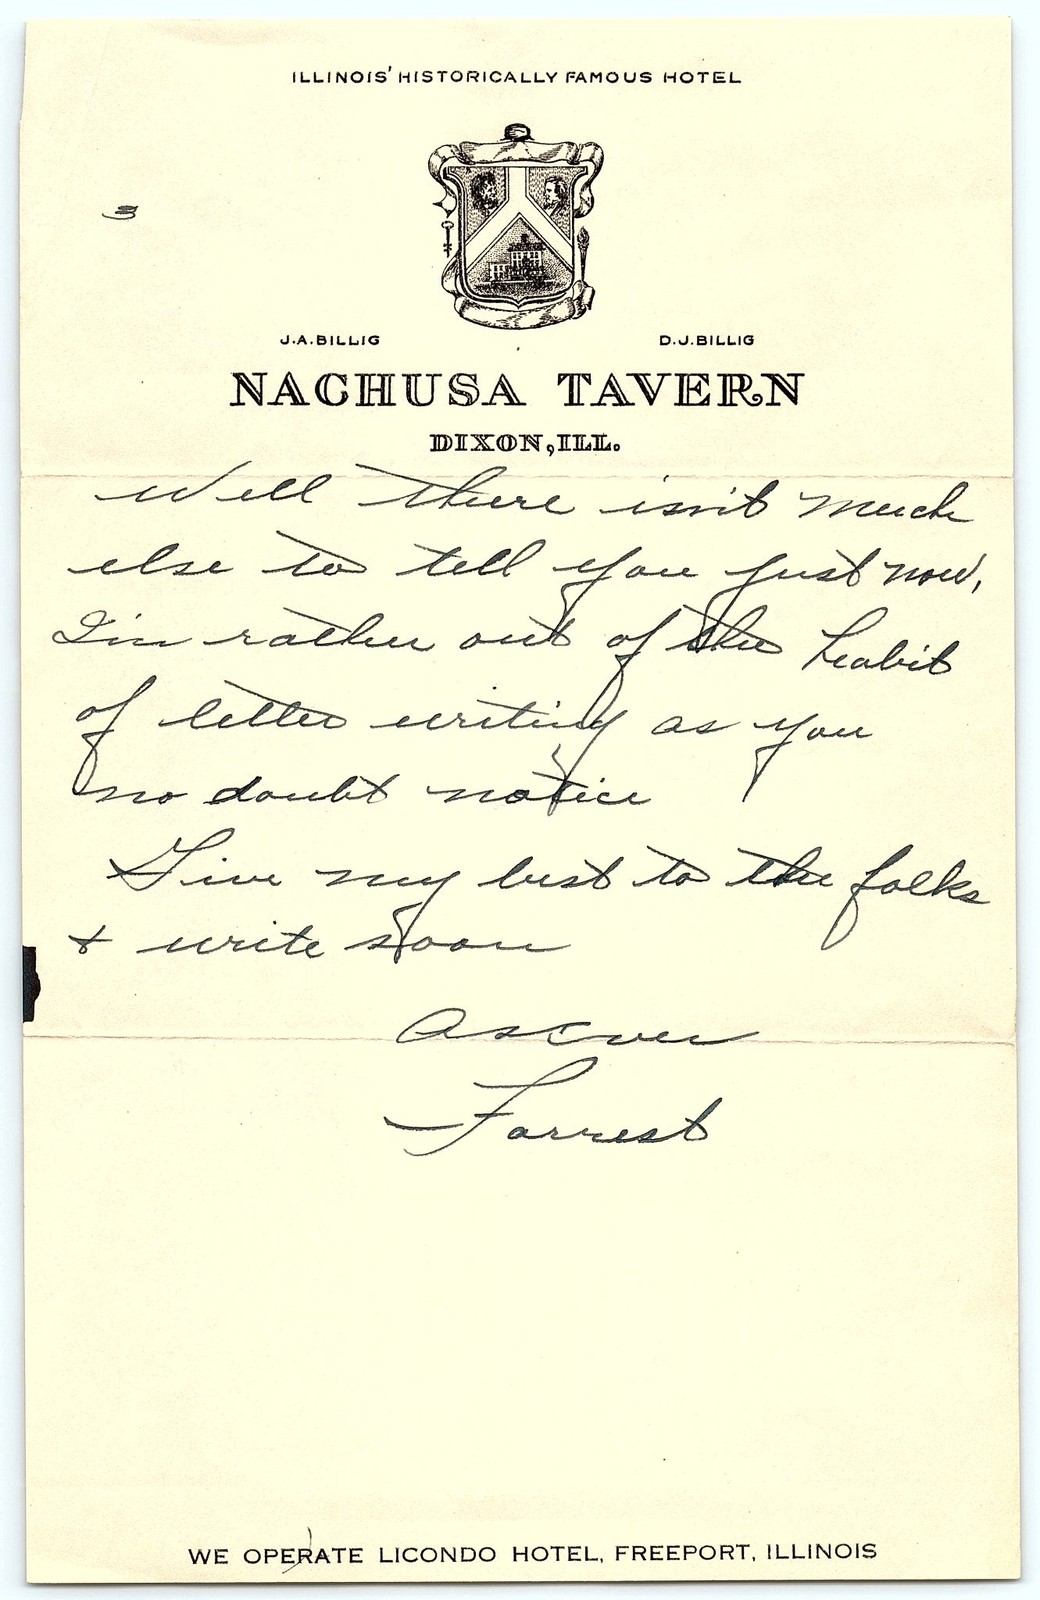 ILLINOIS' HISTORICALLY FAMOUS HOTEL
3
J.A.BILLIG D.J.BILLIG
NACHUSA TAVERN
DIXON, ILL.
Well there isn't much
else to tell you just now,
I'm rather out of the habit
of letter writing as you
no doubt notice
Give my best to the folks
+ write soon
As ever
Forrest
WE OPERATE LICONDO HOTEL, FREEPORT, ILLINOIS